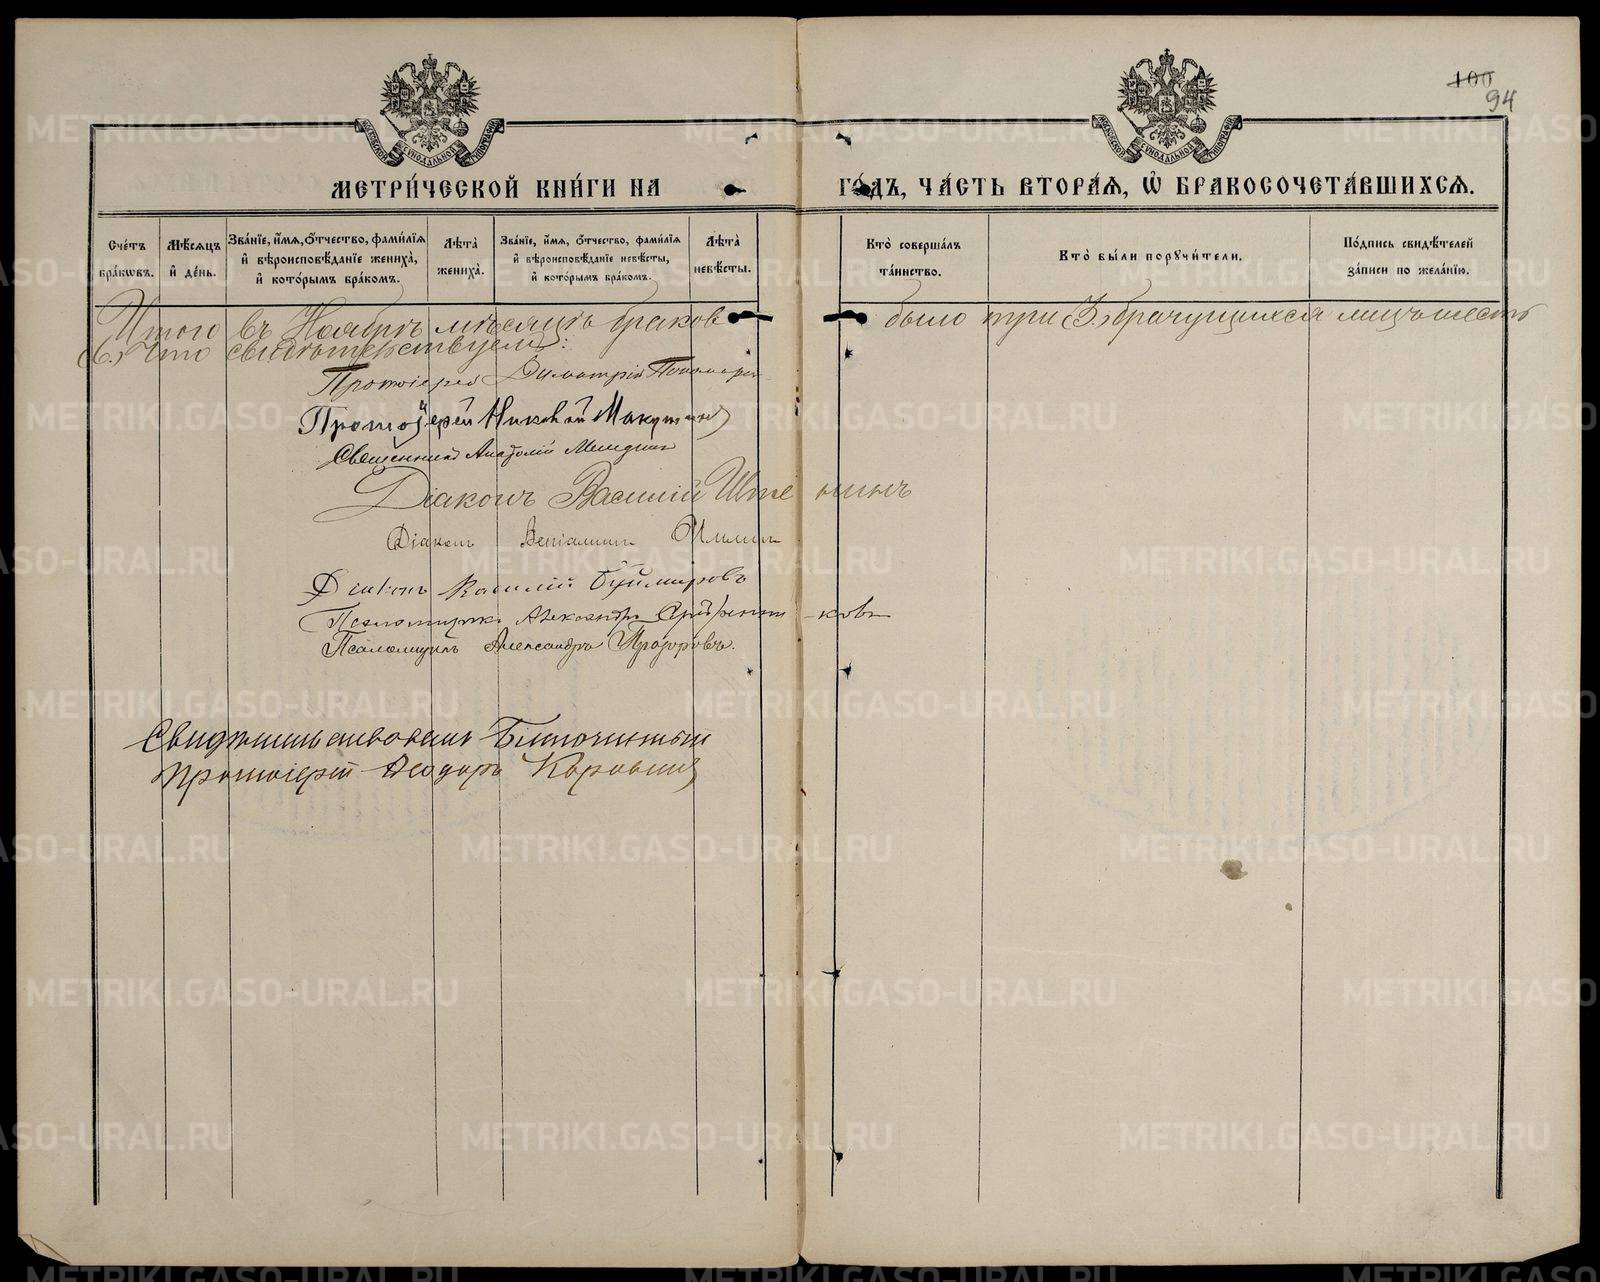 100
94
МОСКОВСКОЙ СѴНОДАЛЬНОЙ ТИПОГРАФІИ
МОСКОВСКОЙ СѴНОДАЛЬНОЙ ТИПОГРАФІИ
МЕТРИ́ЧЕСКОЙ КНИ́ГИ НА ГО́ДЪ, ЧА́СТЬ ВТОРА́Я, Ѽ БРАКОСОЧЕТА́ВШИХСЯ.
Сче́тъ бра́ковъ.
Мѣ́сяцъ и҆ де́нь.
Зва́нїе, и҆́мя, ѻ҆́тчество, фами́лїя и҆ вѣроисповѣ́данїе жениха̀, и҆ кото́рымъ бра́комъ.
Лѣ́та̀ жениха̀.
Зва́нїе, и҆́мя, ѻ҆́тчество, фами́лїя и҆ вѣроисповѣ́данїе невѣ́сты, и҆ кото́рымъ бра́комъ.
Лѣ́та̀ невѣ́сты.
Кто̀ соверша́лъ та́инство.
Кто̀ бы́ли порꙋчи́тели.
По́дпись свидѣ́телей за́писи по жела́нїю.
Итого въ Ноябрѣ мѣсяцѣ браковъ было три (3), брачущихся лицъ шесть
(6.) Что свидѣтельствуемъ:
Протоіерей Димитрій
Протоіерей Николай
Священникъ Анатолій
Діаконъ Василій
Діаконъ Веніаминъ
Діаконъ Василій
Псаломщикъ Александръ
Псаломщикъ Александръ Прозоровъ.
Свидѣтельствовалъ Благочинный
Протоіерей Ѳеодоръ
METRIKI.GASO-URAL.RU